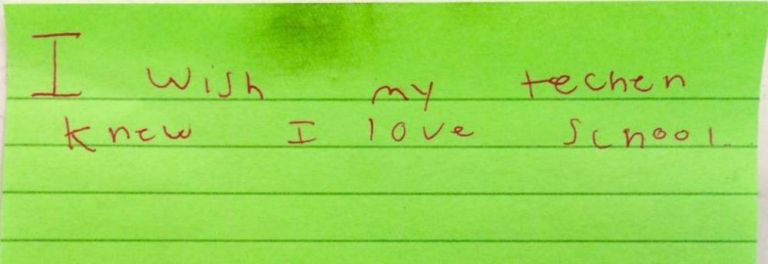 I wish my techer
knew I love school.